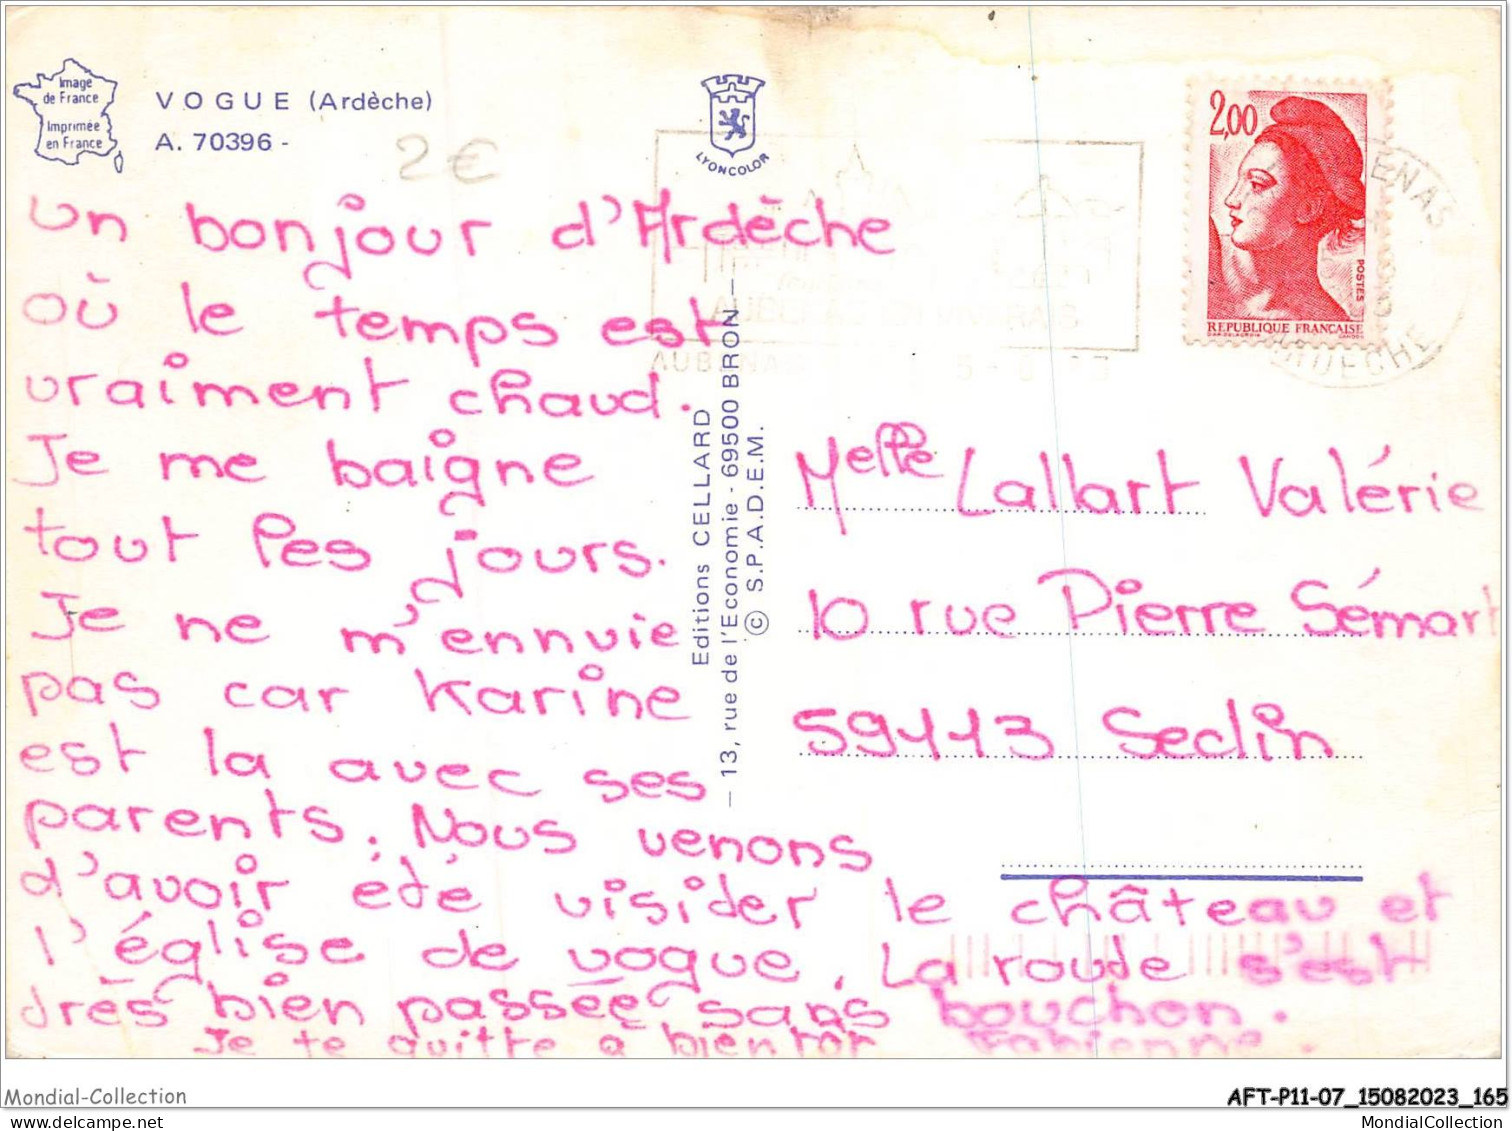 Image
de France
Imprimée
en France
VOGUE (Ardèche)
A. 70396 -
2€
LYONCOLOR
2,00
POSTES
REPUBLIQUE FRANCAISE
ENAS
ARDECHE
AUBENAS EN VIVARAIS
AUBENAS
Un bonjour d'Ardèche
où le temps est
vraiment chaud.
Je me baigne
tout les jours.
Je ne m'ennuie
pas car Karine
est la avec ses
parents. Nous venons
d'avoir été visider le château et
l'église de vogue. La route s'est
drès bien passée sans bouchon.
Je te quitte à bientôt Fabienne.
Editions CELLARD
— 13, rue de l'Economie - 69500 BRON —
© S.P.A.D.E.M.
Melle Lallart Valérie
10 rue Pierre Sémart
59113 Seclin
Mondial-Collection
AFT-P11-07_15082023_165
MondialCollection